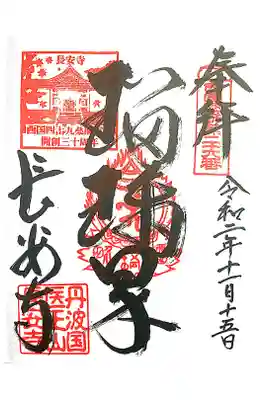 奉拝
令和二年十一月十五日
瑠璃界
長安寺
長安寺
西国四十九薬師霊場
開創三十周年
丹波国
医王山
長安寺